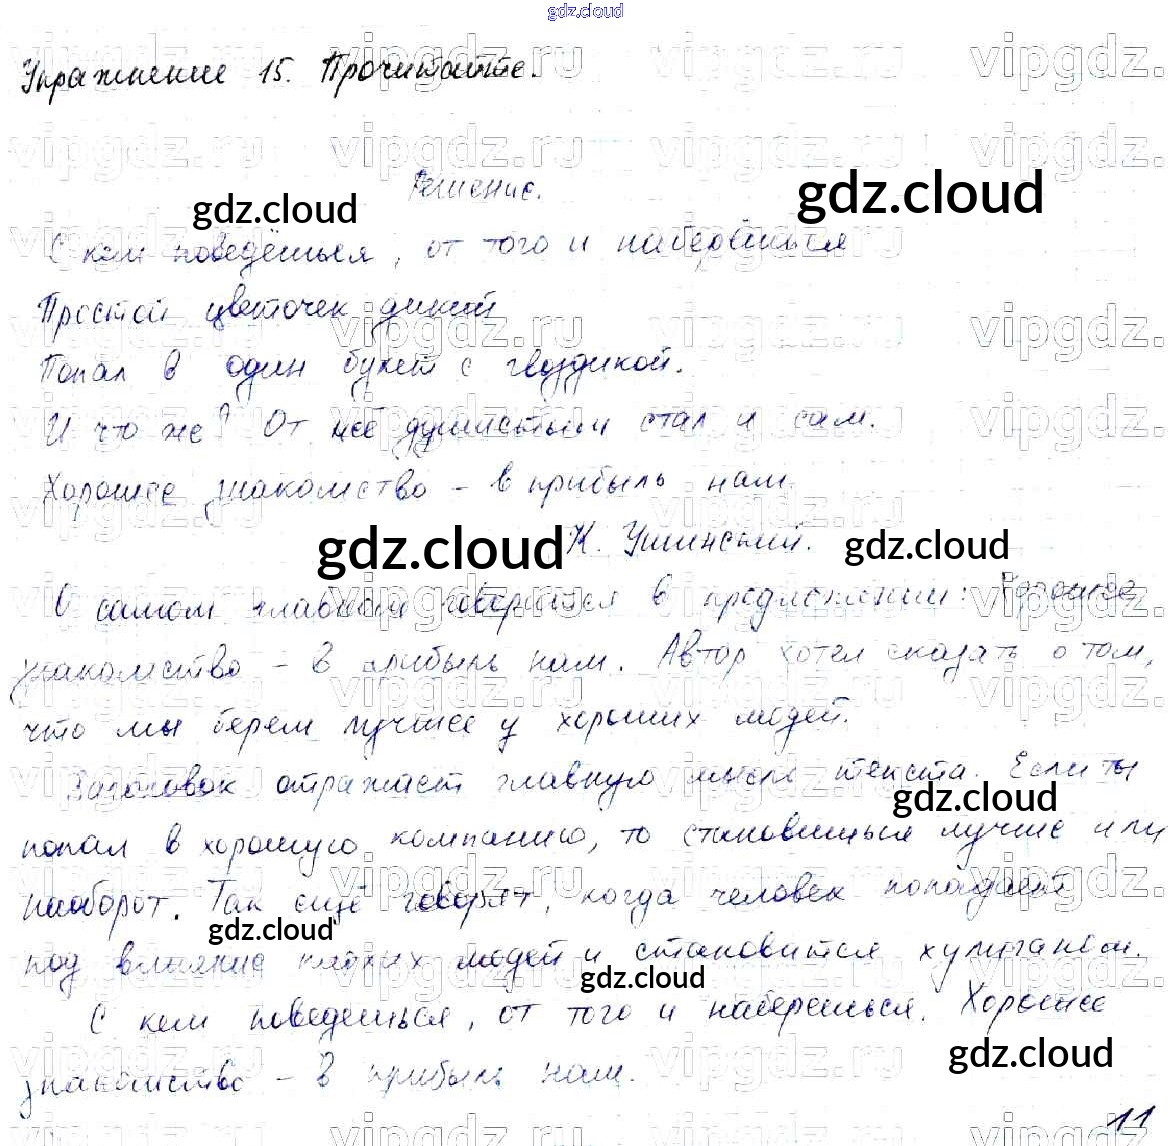 gdz.cloud
Упражнение 15. Прочитайте.
Решение.
С кем поведёшься, от того и наберёшься
Простой цветочек дикий
Попал в один букет с гвоздикой.
И что же? От неё душистым стал и сам.
Хорошее знакомство – в прибыль нам.
К. Ушинский.
О самом главном говорится в предложении: Хорошее
знакомство – в прибыль нам. Автор хотел сказать о том,
что мы берем лучшее у хороших людей.
Заголовок отражает главную мысль текста. Если ты
попал в хорошую компанию, то становишься лучше или
наоборот. Так ещё говорят, когда человек попадает
под влияние плохих людей и становится хулиганом.
С кем поведешься, от того и наберешься. Хорошее
знакомство – в прибыль нам.
11